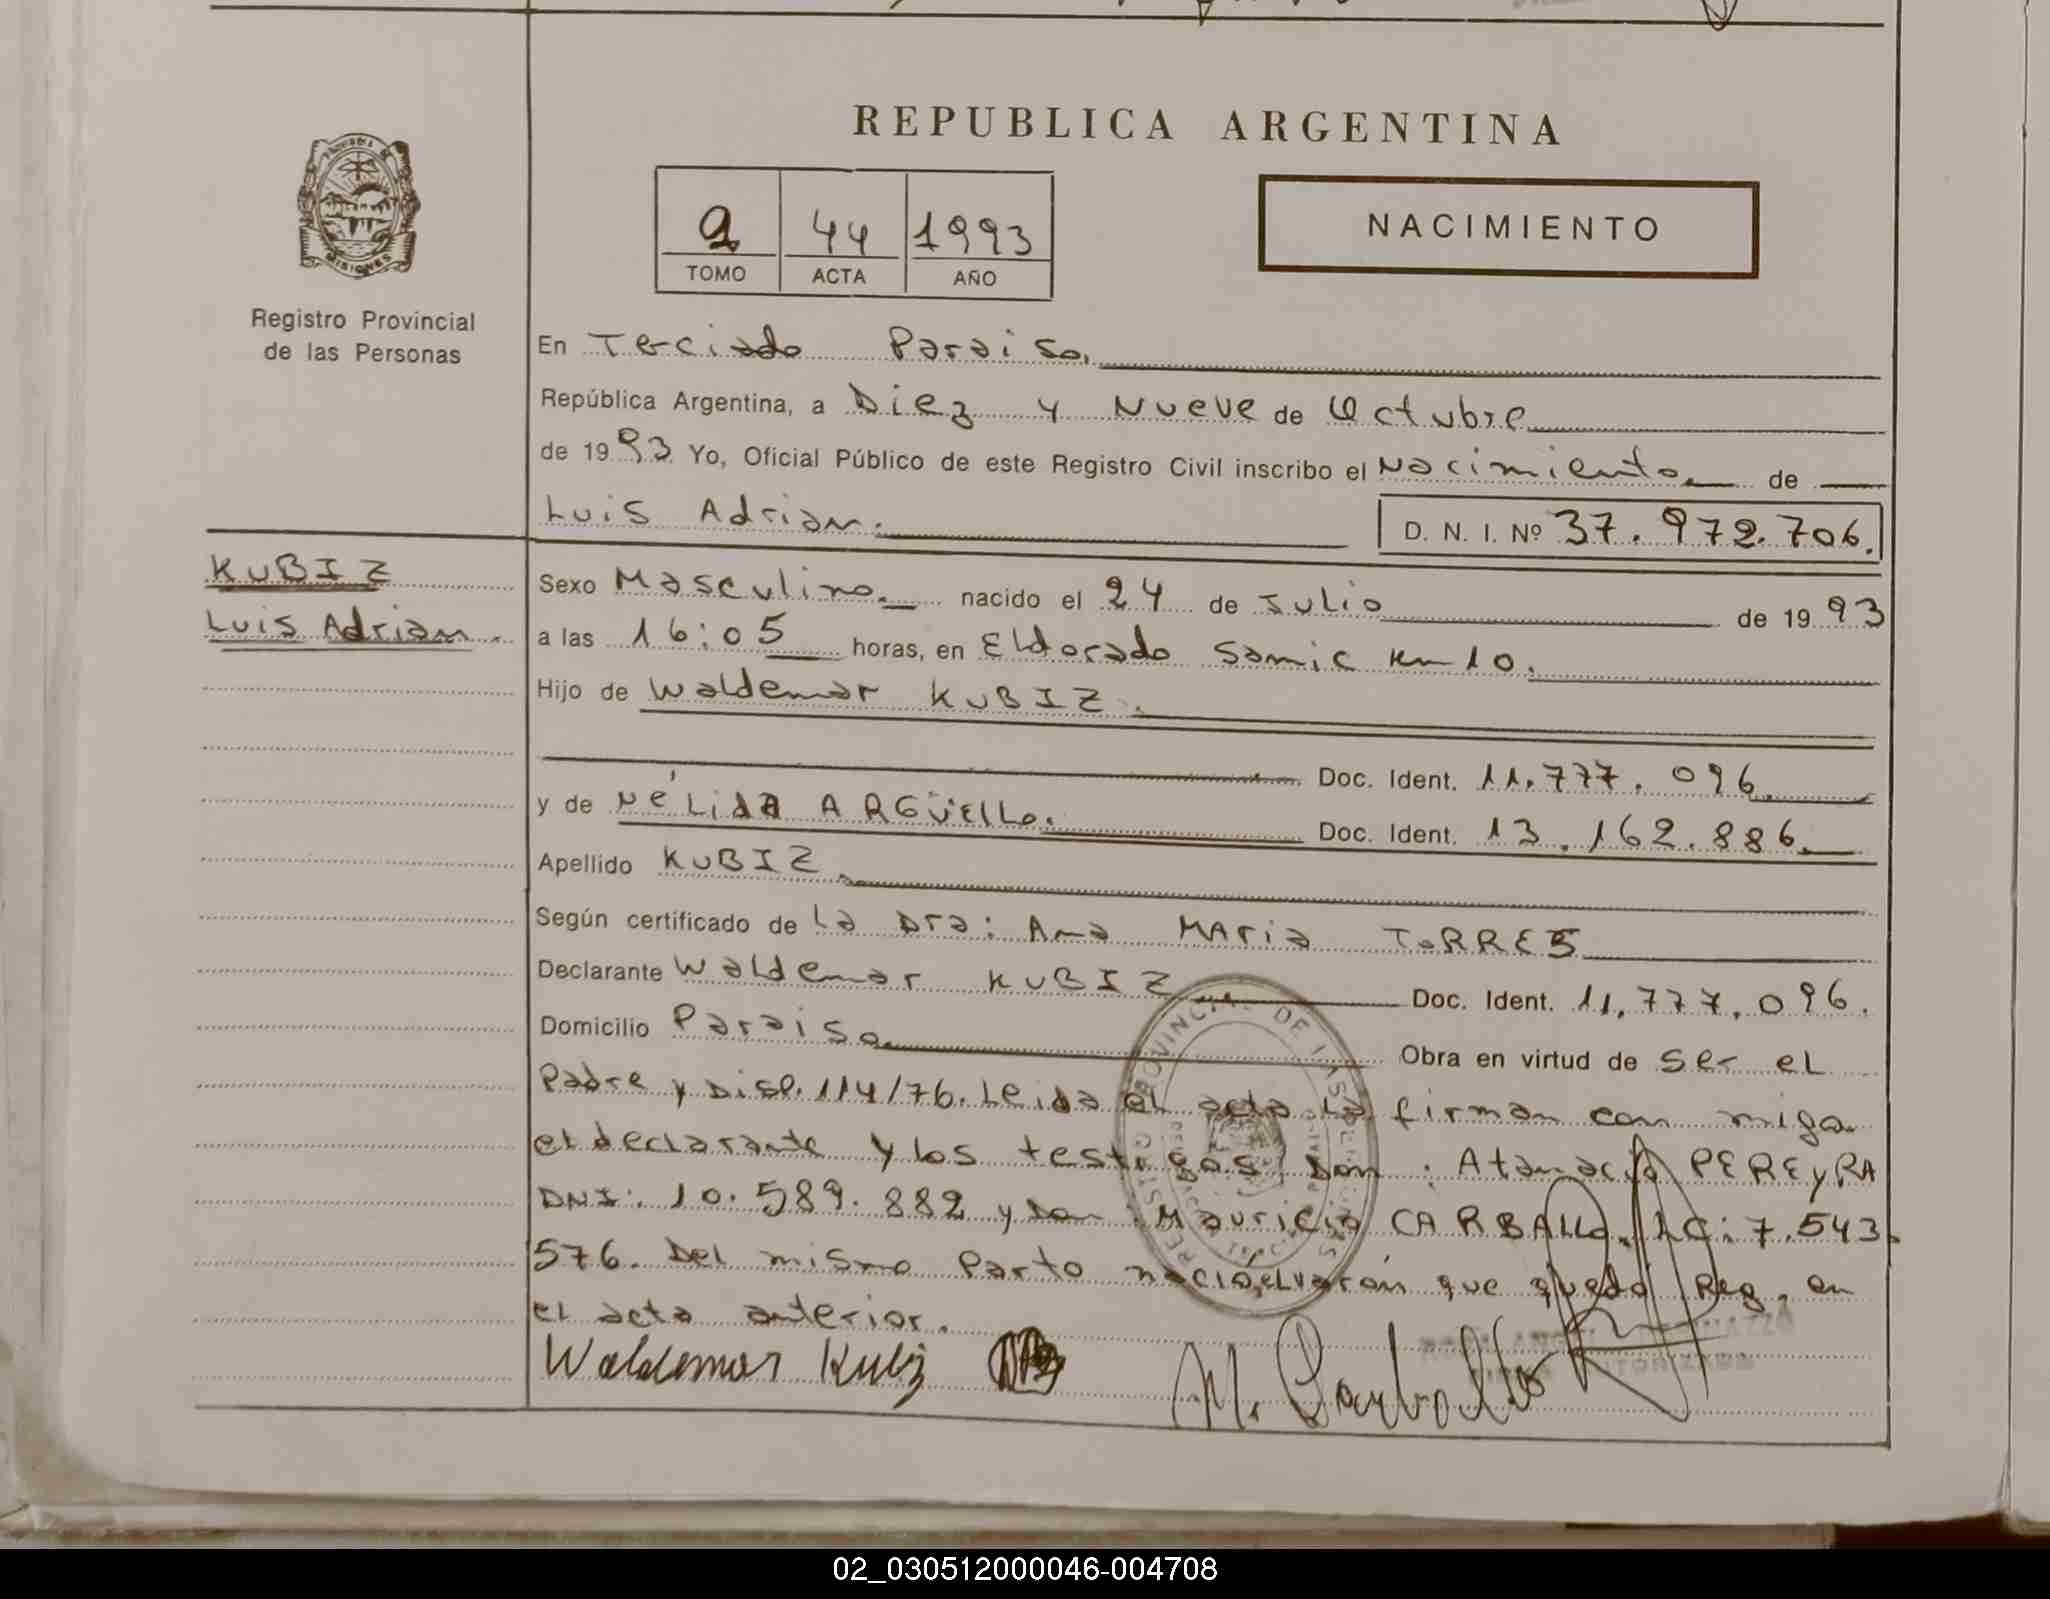 REPUBLICA ARGENTINA
PROVINCIA DE
MISIONES
Registro Provincial
de las Personas
2 44 1993
TOMO ACTA AÑO
NACIMIENTO
En Terciado Paraiso.
República Argentina, a Diez y Nueve de Octubre
de 1993 Yo, Oficial Público de este Registro Civil inscribo el Nacimiento. de
Luis Adrian.
D. N. I. Nº 37.972.706.
KUBIZ
Luis Adrian.
Sexo Masculino. nacido el 24 de Julio de 1993
a las 16:05 horas, en Eldorado Samic Km 10.
Hijo de Waldemar KUBIZ.
Doc. Ident. 11.777.096.
y de NéLidA ARGüELLo. Doc. Ident. 13.162.886.
Apellido KUBIZ.
Según certificado de La Dra: Ana MAria ToRRES
Declarante Waldemar KUBIZ Doc. Ident. 11.777.096.
Domicilio Paraiso. Obra en virtud de ser el
Padre y Disp. 114/76. Leida el acta la firman con migo
el declarante y los testigos Don: Atanacio PEREyRA
DNI: 10.589.882 y Don: Mauricio CARBALLo. LC: 7.543.
576. Del mismo Parto nacio el varón que quedó Reg. en
el acta anterior.
Waldemar Kubiz M. Carballo
REGISTRO PROVINCIAL DE LAS PERSONAS
AUTORIZADO
02_030512000046-004708